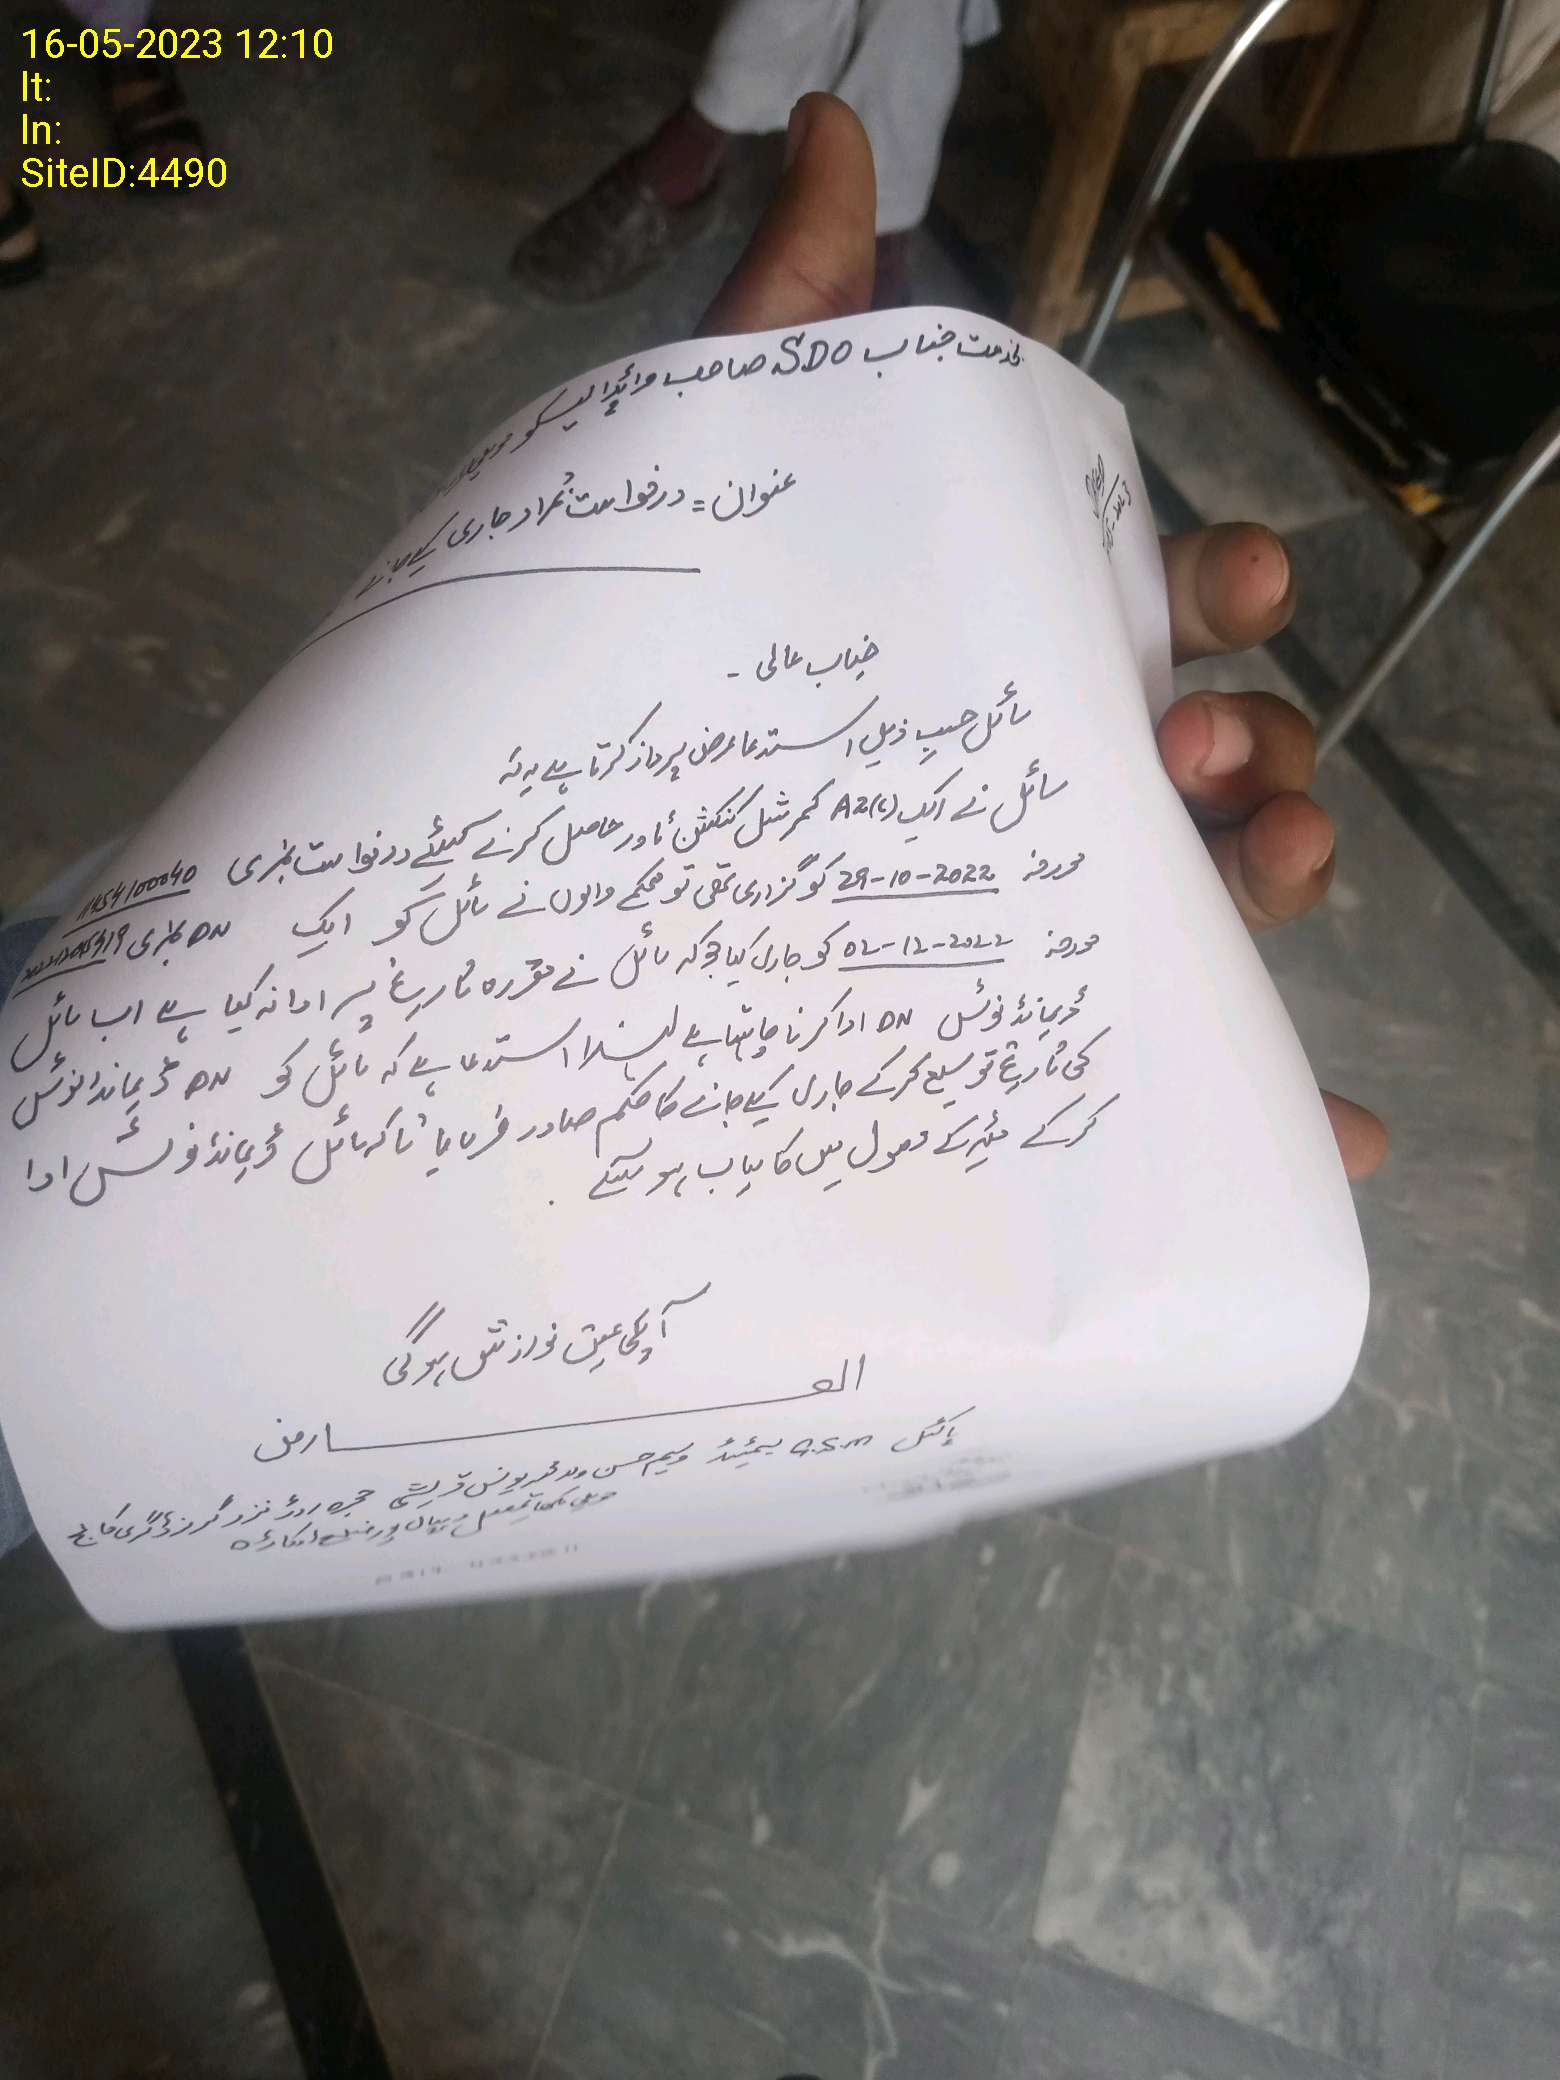 16-05-2023 12:10
lt:
ln:
SiteID:4490
بخدمت جناب SDO صاحب واپڈا لیسکو حویلی
عنوان = درخواست بمراد جاری کیے جانے
جناب عالی -
سائل حسب ذیل استدعا عرض پرداز کرتا ہے یہ کہ
سائل نے ایک A2(c) کمرشل کنکشن ٹاور حاصل کرنے کیلئے درخواست نمبری 11454100040
مورخہ 29-10-2022 کو گزاری تھی تو محکمے والوں نے سائل کو ایک DN نمبری
مورخہ 02-12-2022 کو جاری کیا جو کہ سائل نے مقررہ تاریخ پر ادا نہ کیا ہے اب سائل
ڈیمانڈ نوٹس DN ادا کرنا چاہتا ہے لہذا استدعا ہے کہ سائل کو DN ڈیمانڈ نوٹس
کی تاریخ توسیع کرکے جاری کیے جانے کا حکم صادر فرمایا تاکہ سائل ڈیمانڈ نوٹس ادا
کرکے میٹر کے حصول میں کامیاب ہو سکے .
آپکی عین نوازش ہوگی
العارض
سائل G.S.M وسیم حسن ولد محمد یونس قریشی حجرہ روڈ نزد گرلز ڈگری کالج
حویلی لکھا تحصیل دیپال پور ضلع اوکاڑہ